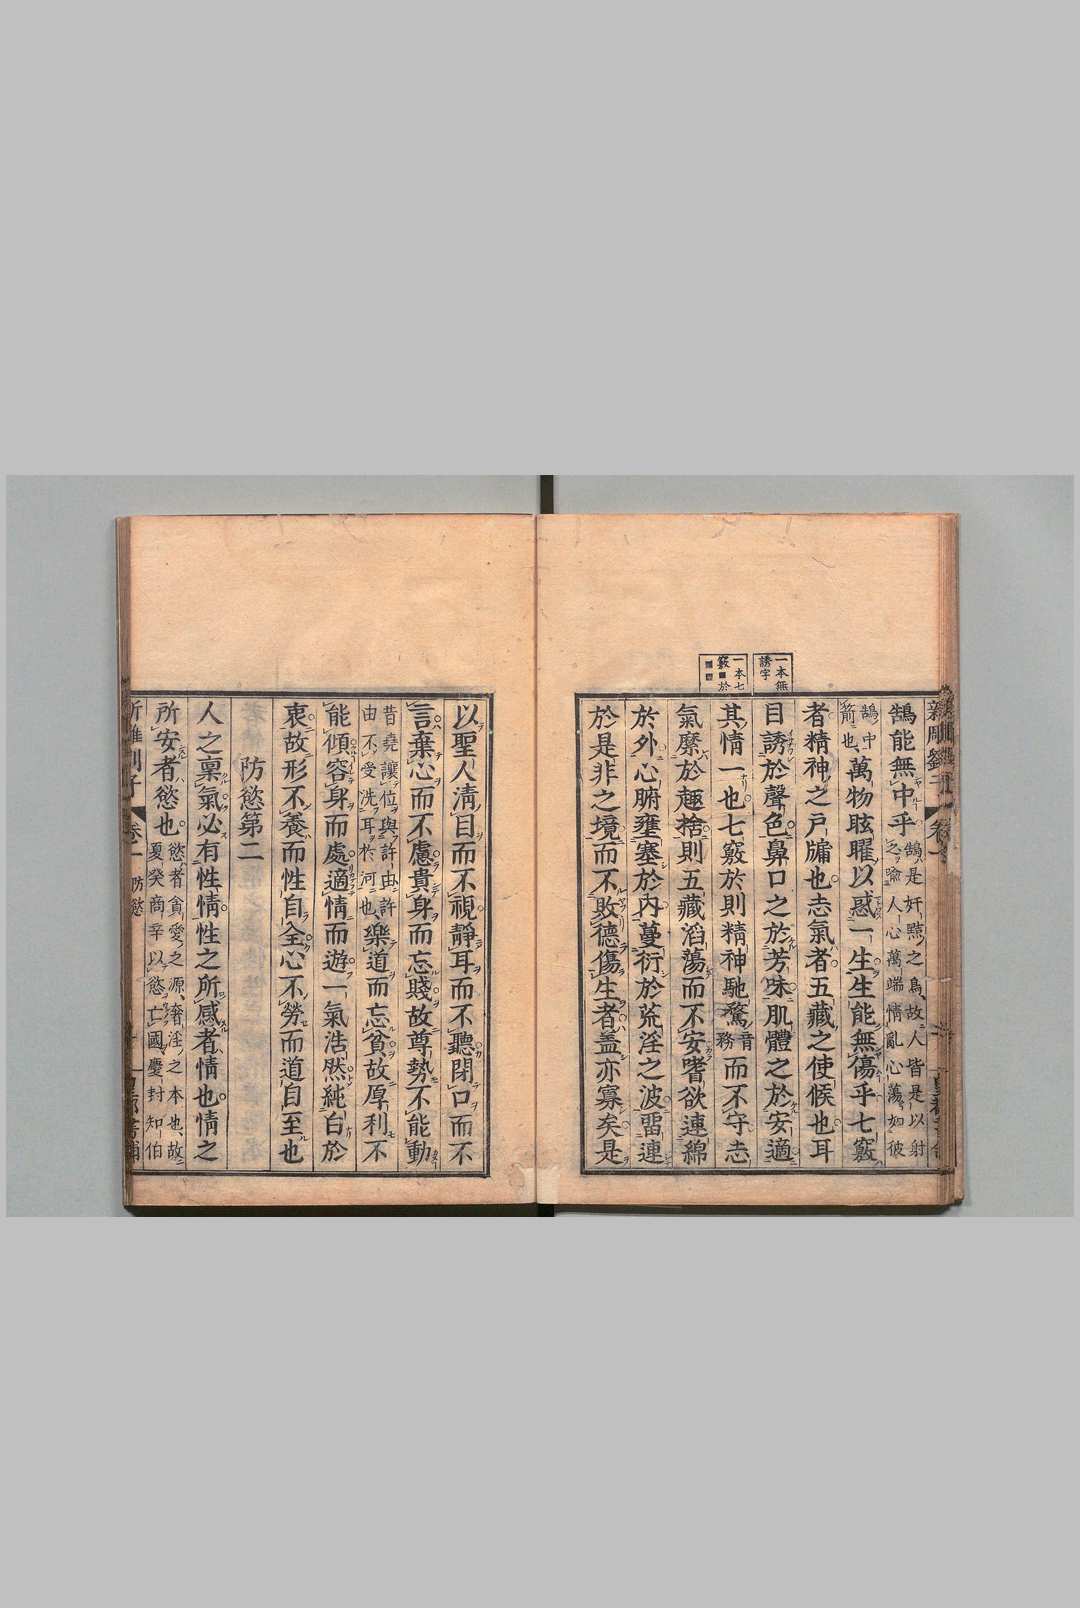 一本無
誘字
一本七
竅■於
鵠能無中乎鵠是奸㸃之鳥故人皆是以射
之喩人心萬端情亂心蕩如彼
鵠中
箭也萬物眩曜以惑一生生能無傷乎七竅
者精神之戸牖也志氣者五藏之使候也耳
目誘於聲色鼻口之於芳味肌體之於安適
其情一也七竅於則精神馳騖音務而不守志
氣縻於趣捨則五藏滔蕩而不安嗜欲連綿
於外心腑壅塞於内蔓衍於荒淫之波留連
於是非之境而不敗德傷生者盖亦寡矣是
以聖人清目而不視静耳而不聽閉口而不
言棄心而不慮貴身而忘賤故尊勢不能動
昔堯讓位與許由許
由不受洗耳於河也樂道而忘貧故厚利不
能傾容身而處適情而遊一氣浩然純白於
衷故形不養而性自全心不勞而道自至也
防慾第二
人之稟氣必有性情性之所感者情也情之
所安者慾也慾者貪愛之源奢淫之本也故
夏癸商辛以慾亡國慶封知伯
新雕劉子
卷一
防慾